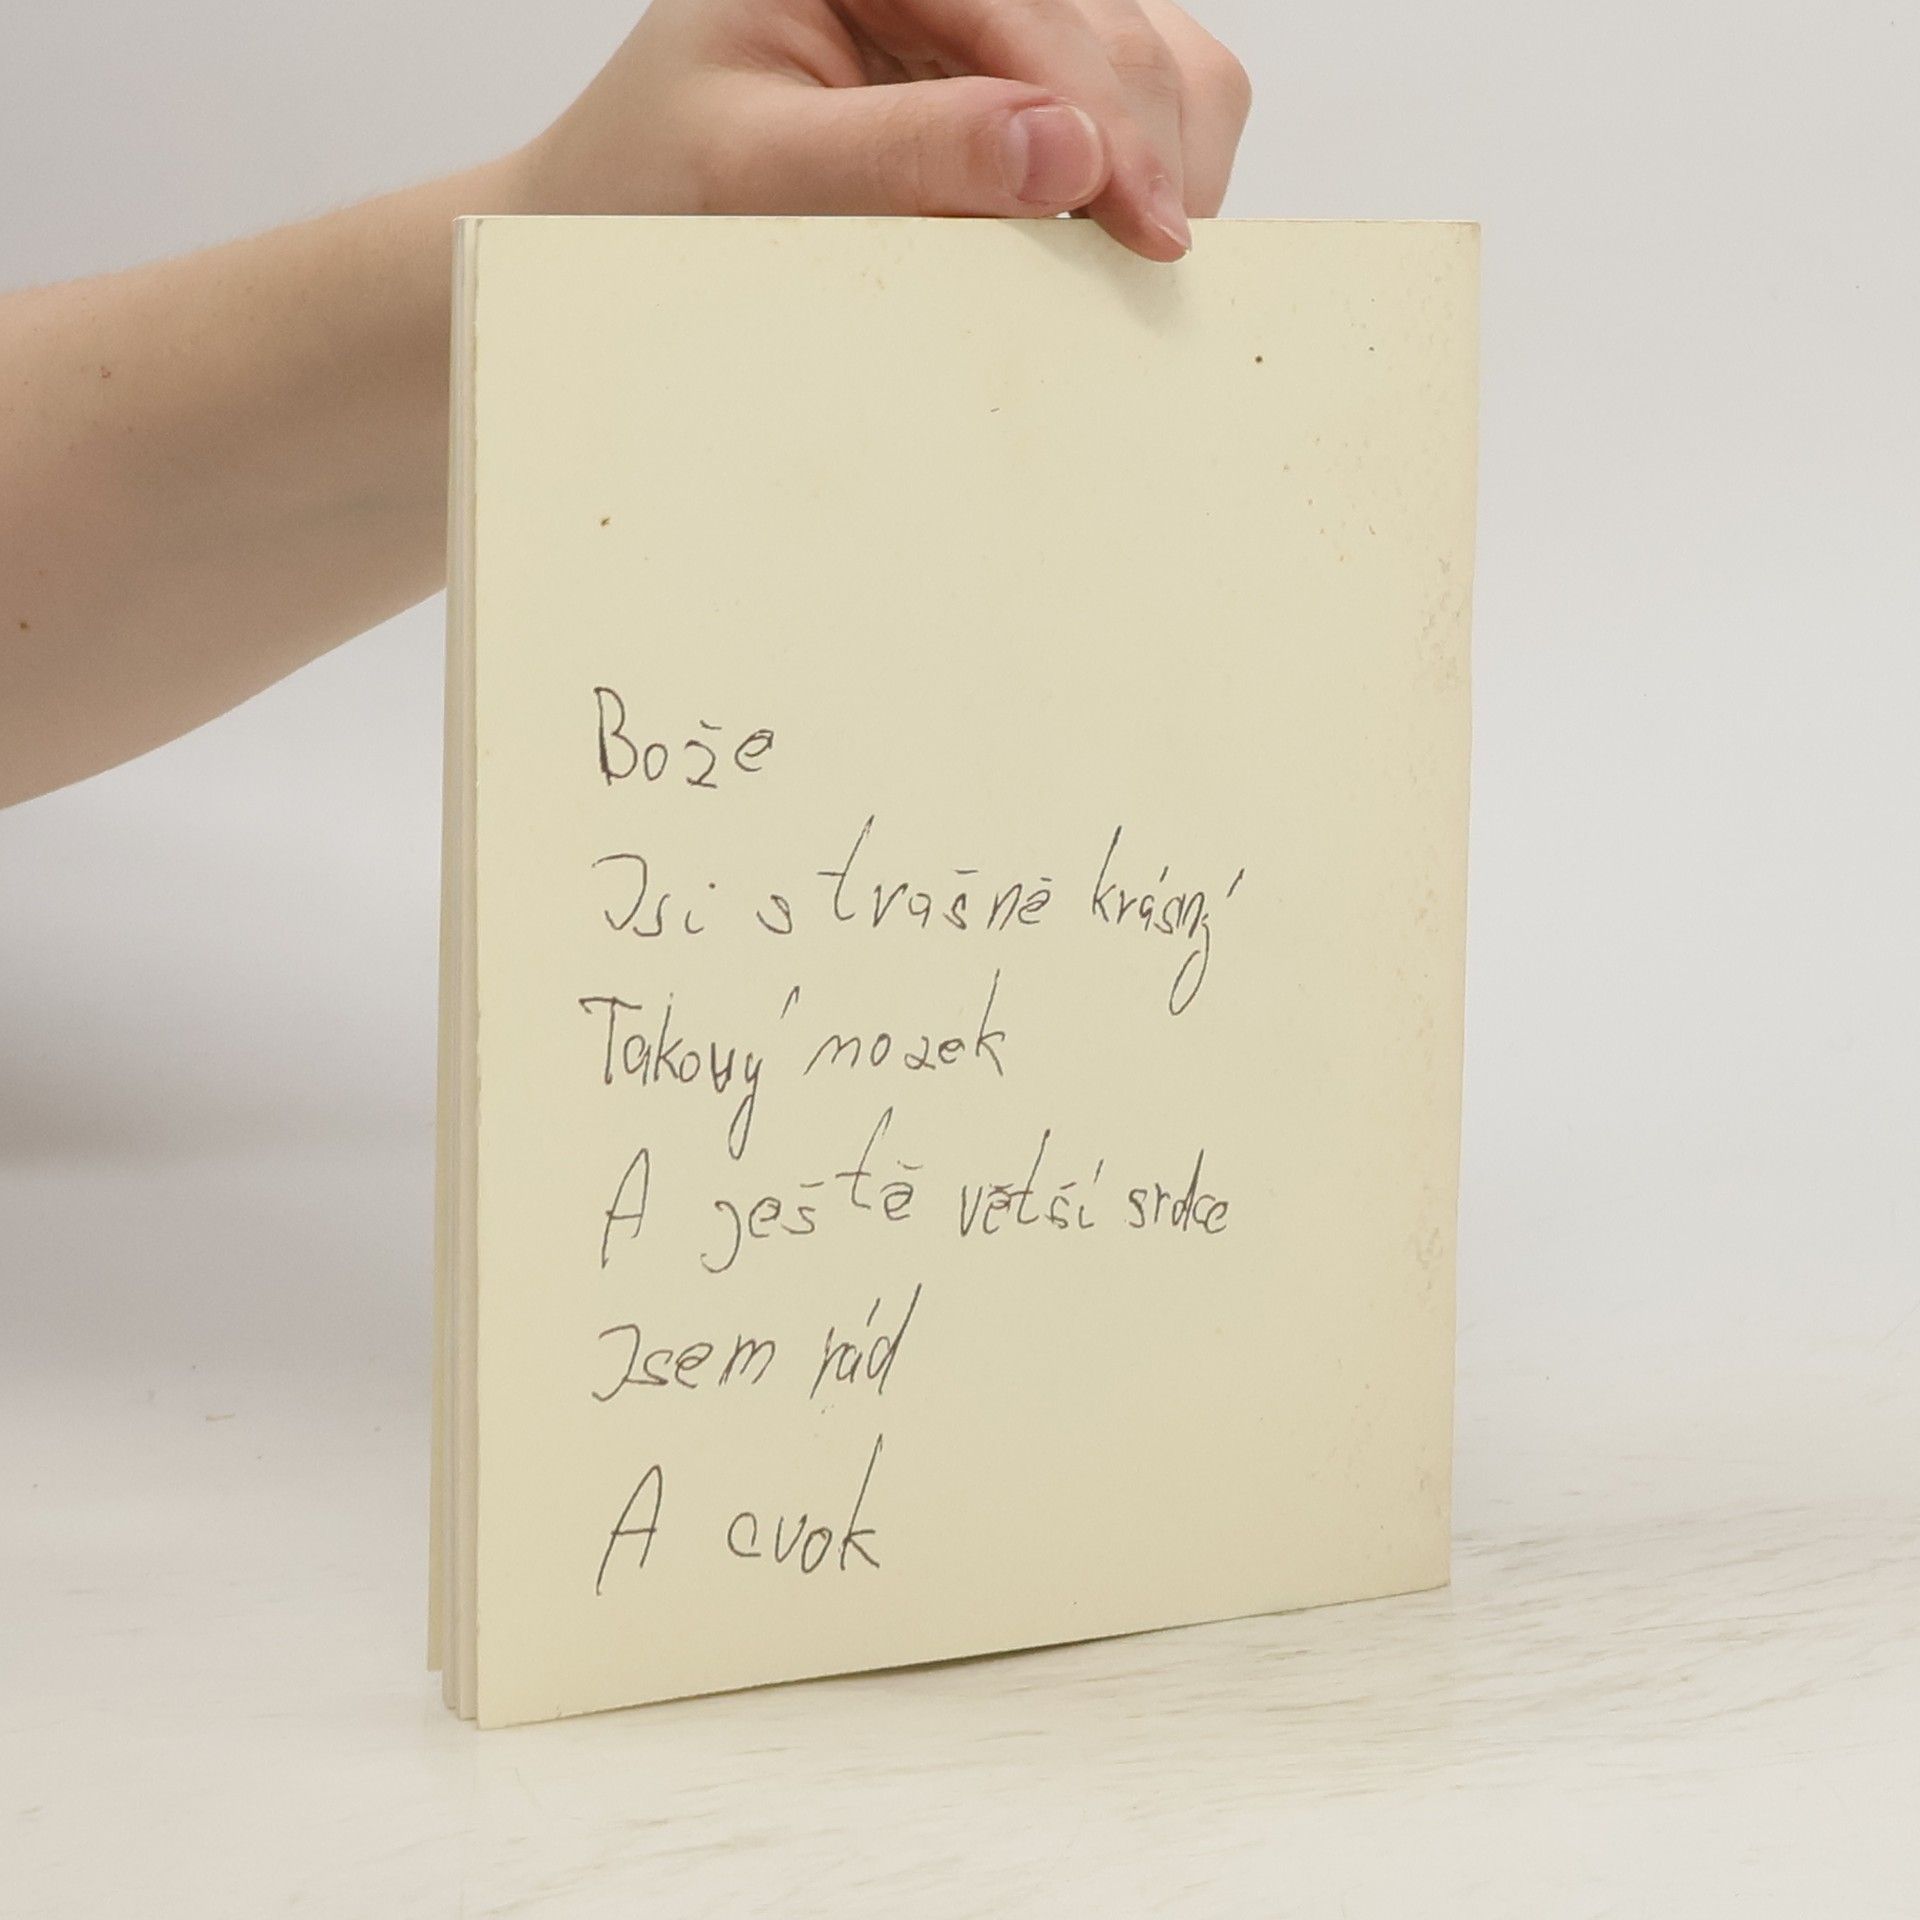 Bože
Jsi strašně krásný
Takový mozek
A ještě větší srdce
Jsem rád
A cvok